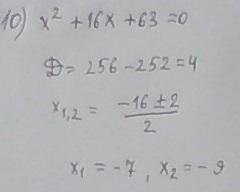 10) x² + 16x + 63 = 0
D = 256 - 252 = 4
x₁,₂ = (-16 ± 2)/2
x₁ = -7, x₂ = -9